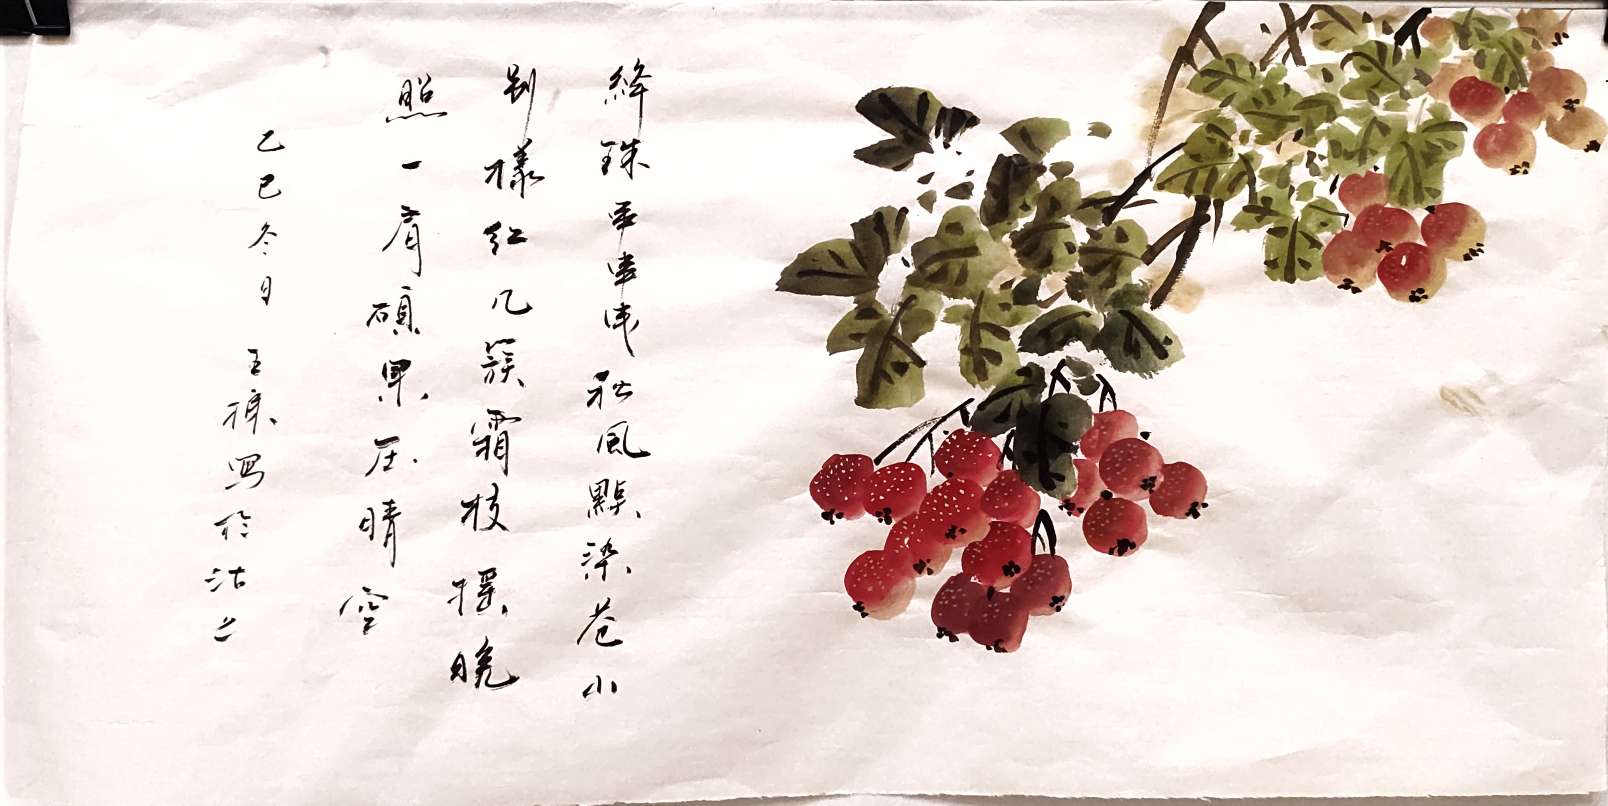 絳珠串串映秋風點染蒼山
別樣紅几簇霜枝搖晚
照一肩碩果压晴空
乙巳冬日 王 寫於沽上